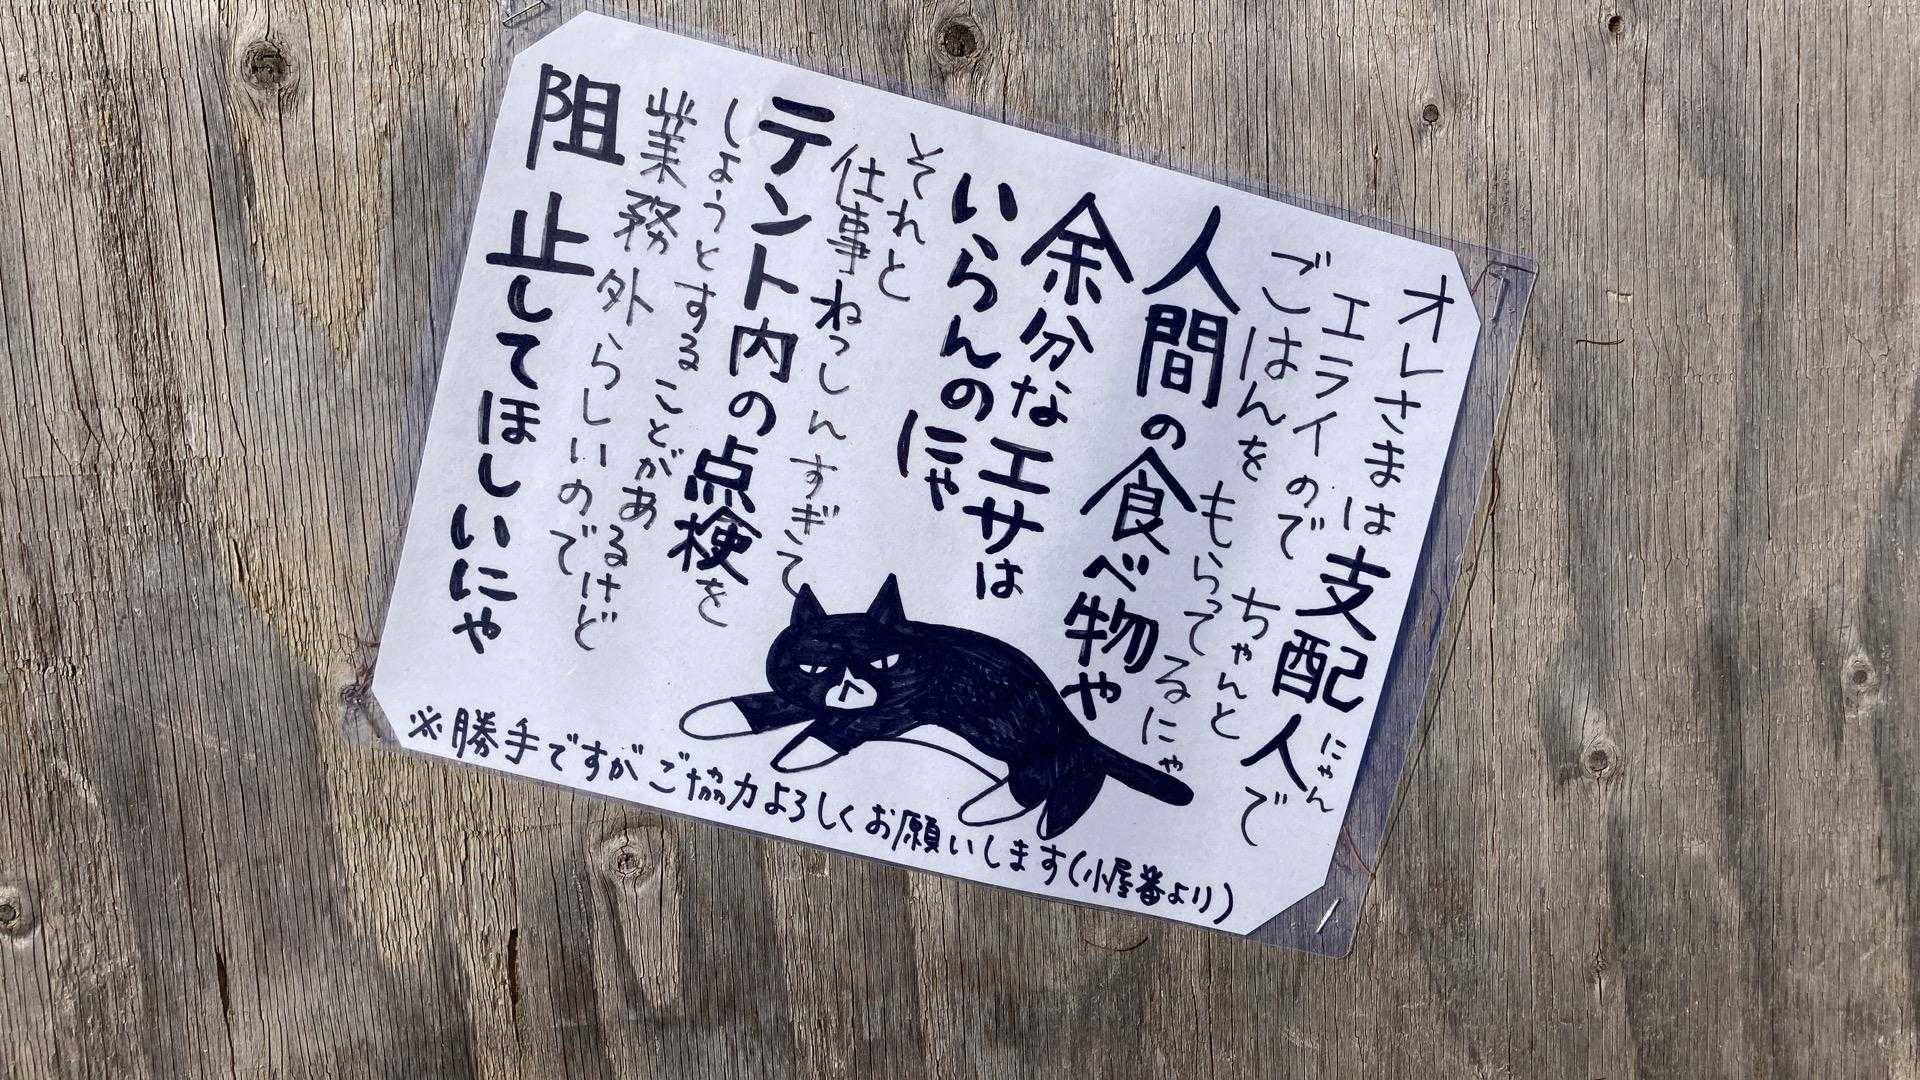 オレさまは支配人で
にゃん
エライのでちゃんと
ごはんをもらってるにゃ
人間の食べ物や
余分なエサは
いらんのにゃ
それと
仕事ねっしんすぎて
テント内の点検を
しようとすることがあるけど
業務外らしいので
阻止してほしいにゃ
※勝手ですがご協力よろしくお願いします(小屋番より)